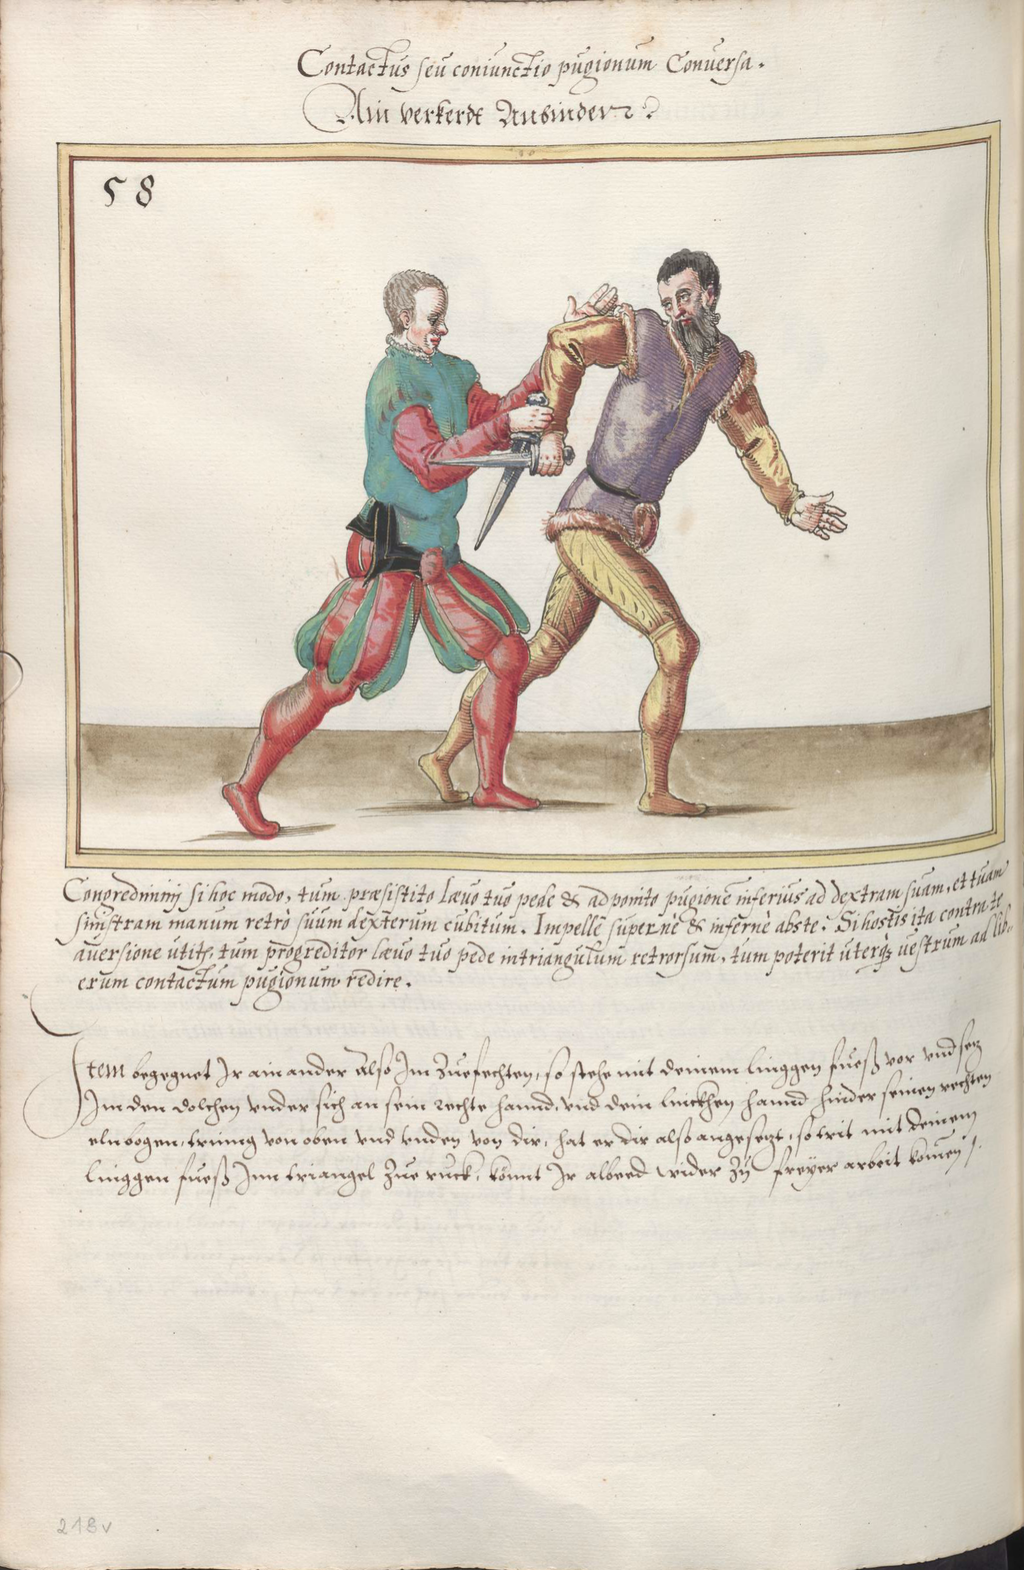 Contactus seu coniunctio pugionum Conversa.
Ain verkerdt Anbinden
58
Congredimini si hoc modo, tum præsistito Lævo tuo pede & adponito pugionē inferius ad dextram suam, et tuam
sinistram manum retrò suum dexterum cubitum. Impelle supernè & infernè abste. Si hostis ita contra te
aversione utitr, tum progreditor lævo tuo pede in triangulum retrorsum, tum poterit uterqz vestrum ad lib-
erum contactum pugionum redire.
Item begegnet Ir ainander Also Im Zuefechten, so stehe mit deinem linggen fueß vor vnd setz
Im den dolchen vnder sich an sein rechte hannd, vnd dein linckhen hannd hinder seinen rechten
elnbogen, truing von oben vnd vnden von dir, hat er dir also angesetzt, so trit mit deinem
linggen fueß Inn triangel Zue ruck, kombt Ir albeed wider zu freyer arbeit komen
218v